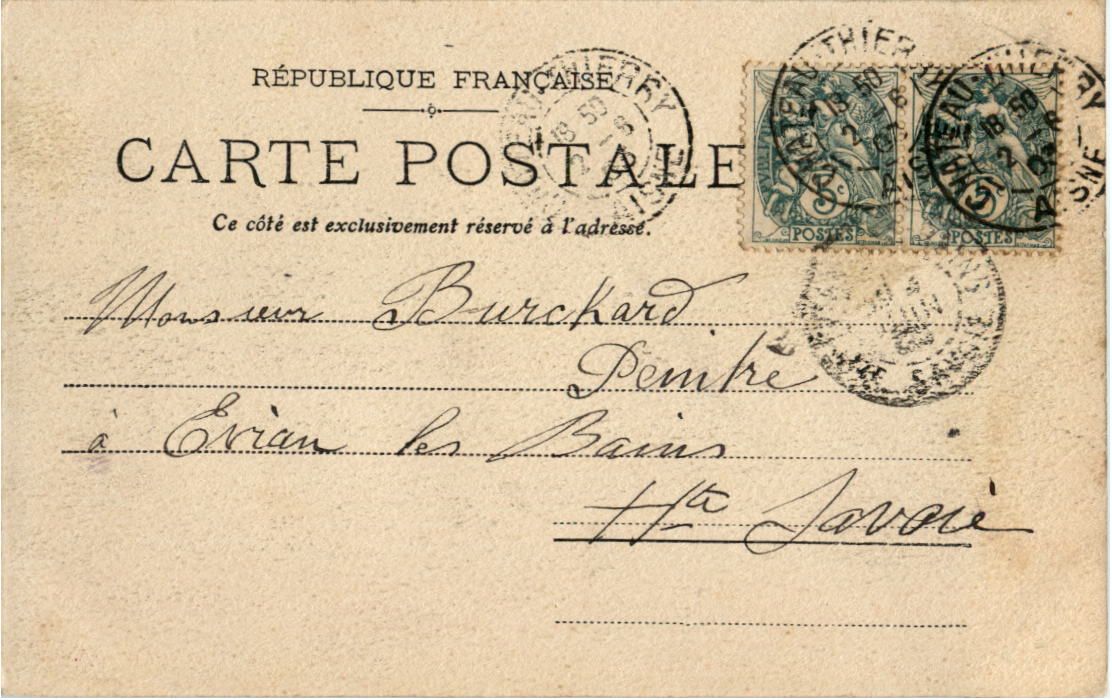 RÉPUBLIQUE FRANÇAISE
CARTE POSTALE
Ce côté est exclusivement réservé à l'adresse.
CHATEAU-THIERRY
18 50
2 - 6
03
AISNE
5c
POSTES
5
POSTES
Monsieur Burckard
Peintre
à Evian les Bains
Hte Savoie